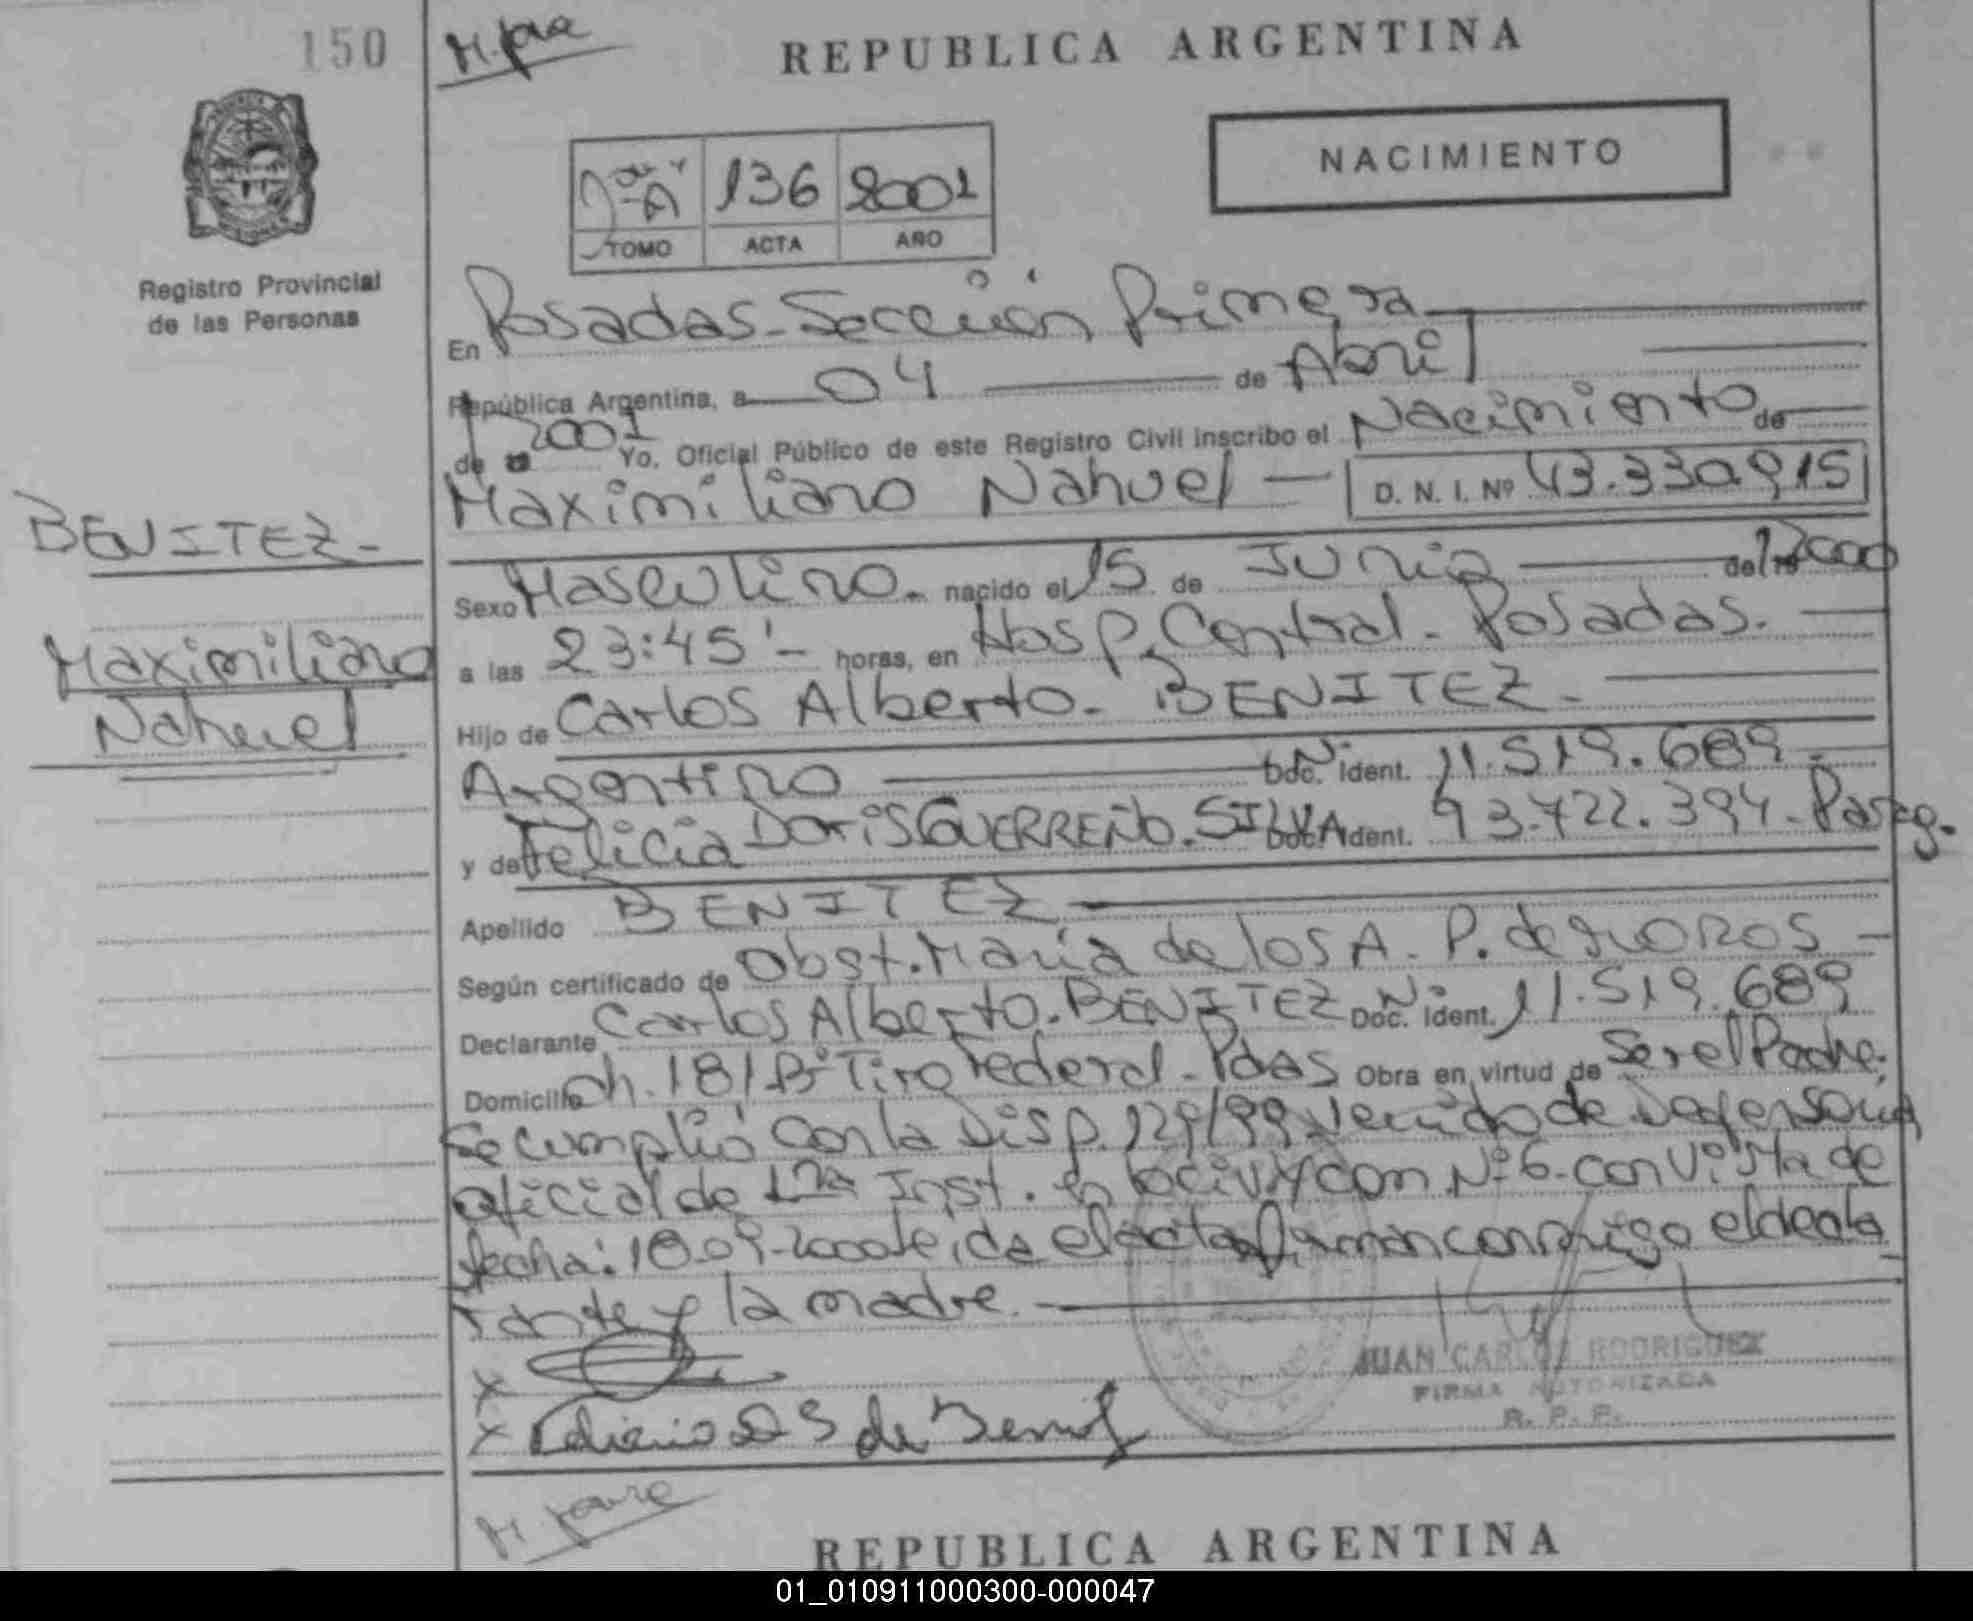 150
REPUBLICA ARGENTINA
NACIMIENTO
136 2001
TOMO ACTA AÑO
Registro Provincial
de las Personas
En Posadas - Sección Primera
República Argentina, a 04 de Abril
de 2001 Yo, Oficial Público de este Registro Civil inscribo el Nacimiento de
Maximiliano Nahuel D. N. I. Nº 43.330.915
BENITEZ -
Maximiliano
Nahuel
Sexo Masculino. nacido el 15 de Junio de 2000
a las 23:45' - horas, en Hosp. Central - Posadas.
Hijo de Carlos Alberto - BENITEZ -
Argentino Doc. Nº Ident. 11.519.689 -
y de Felicia Doris GUERREÑO. SILVA Doc. Ident. 93.722.394 - Parag.
Apellido BENITEZ
Según certificado de Obst. María de los A. P. de
Declarante Carlos Alberto. BENITEZ Doc. Nº Ident. 11.519.689
Domicilio Ch. 181 Bº Tiro Federal - Pdas Obra en virtud de Ser el Padre.
Se cumplió con la Disp. 129/99 venido de Defensoría
oficial de 1ra Inst. en lo civ. y com Nº 6 - con vista de
fecha: 18-09-2000 leída el acta firman conmigo el decla
rante y la madre.
X
X de
JUAN CARLOS RODRIGUEZ
FIRMA AUTORIZADA
R. P. P.
REPUBLICA ARGENTINA
01_010911000300-000047